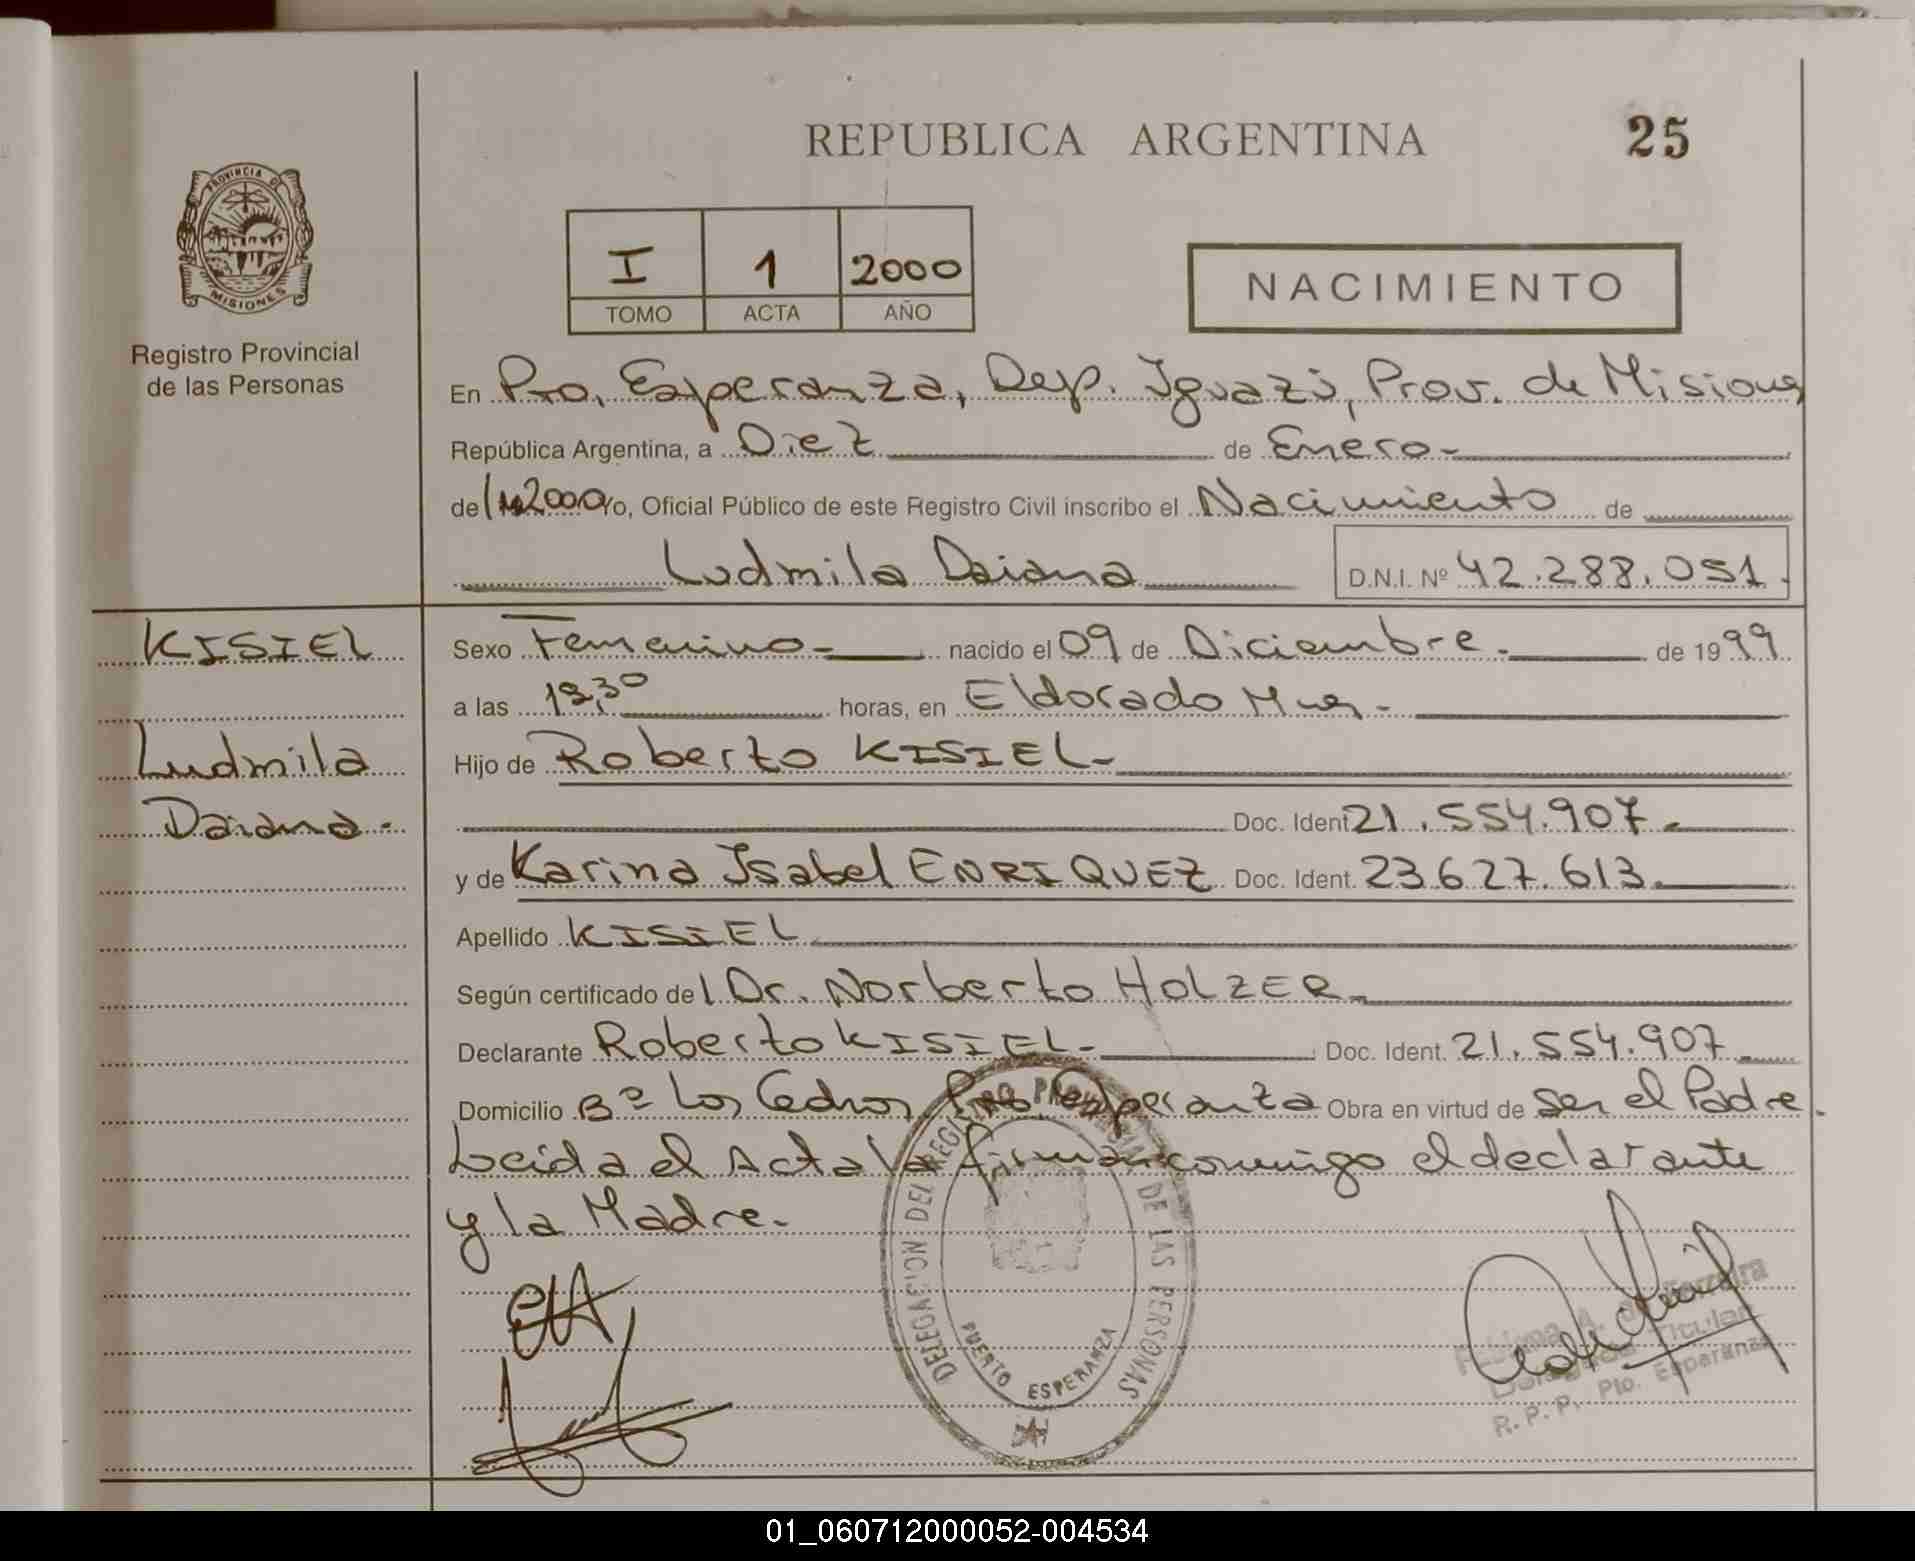 REPUBLICA ARGENTINA
25
PROVINCIA DE
MISIONES
Registro Provincial
de las Personas
I 1 2000
TOMO ACTA AÑO
NACIMIENTO
En Pto. Esperanza, Dep. Iguazú, Prov. de Misiones
República Argentina, a Diez de Enero-
de 2000 Yo, Oficial Público de este Registro Civil inscribo el Nacimiento de
Ludmila Daiana D.N.I. Nº 42.288.051.
KISIEL
Ludmila
Daiana-
Sexo Femenino- nacido el 09 de Diciembre- de 1999
a las horas, en Eldorado
Hijo de Roberto KISIEL-
Doc. Ident 21.554.907-
y de Karina Isabel ENRIQUEZ Doc. Ident. 23.627.613.
Apellido KISIEL
Según certificado del Dr. Norberto HOLZER-
Declarante Roberto KISIEL- Doc. Ident. 21.554.907
Domicilio Bº Los Cedros Pto Esperanza Obra en virtud de ser el Padre.
Leida el Acta la firman conmigo el declarante
y la Madre.
DELEGACION DEL REGISTRO PROVINCIAL DE LAS PERSONAS
PUERTO ESPERANZA
A. de Ferreira
Titular
R. P. P. Pto. Esperanza
01_060712000052-004534